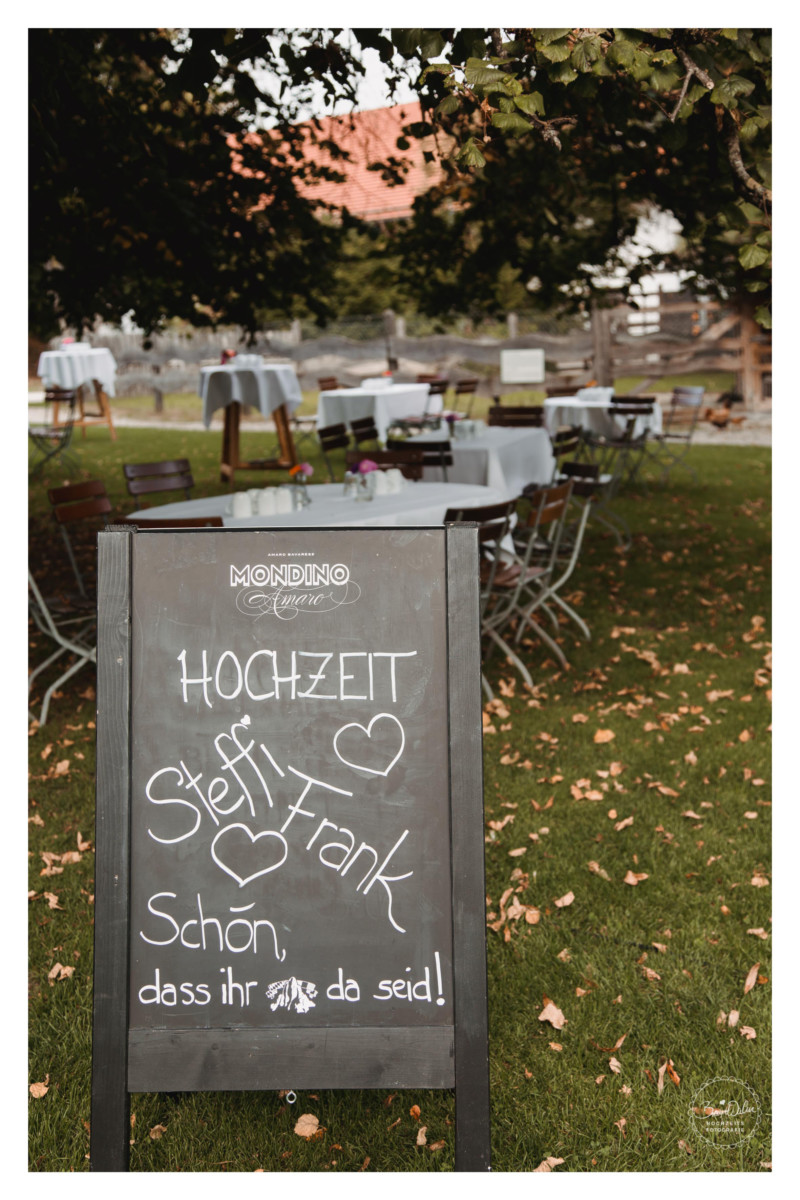 AMARO BAVARESE
MONDINO
Amaro
HOCHZEIT
Steffi
Frank
Schön,
dass ihr da seid!
HOCHZEITS
FOTOGRAFIE